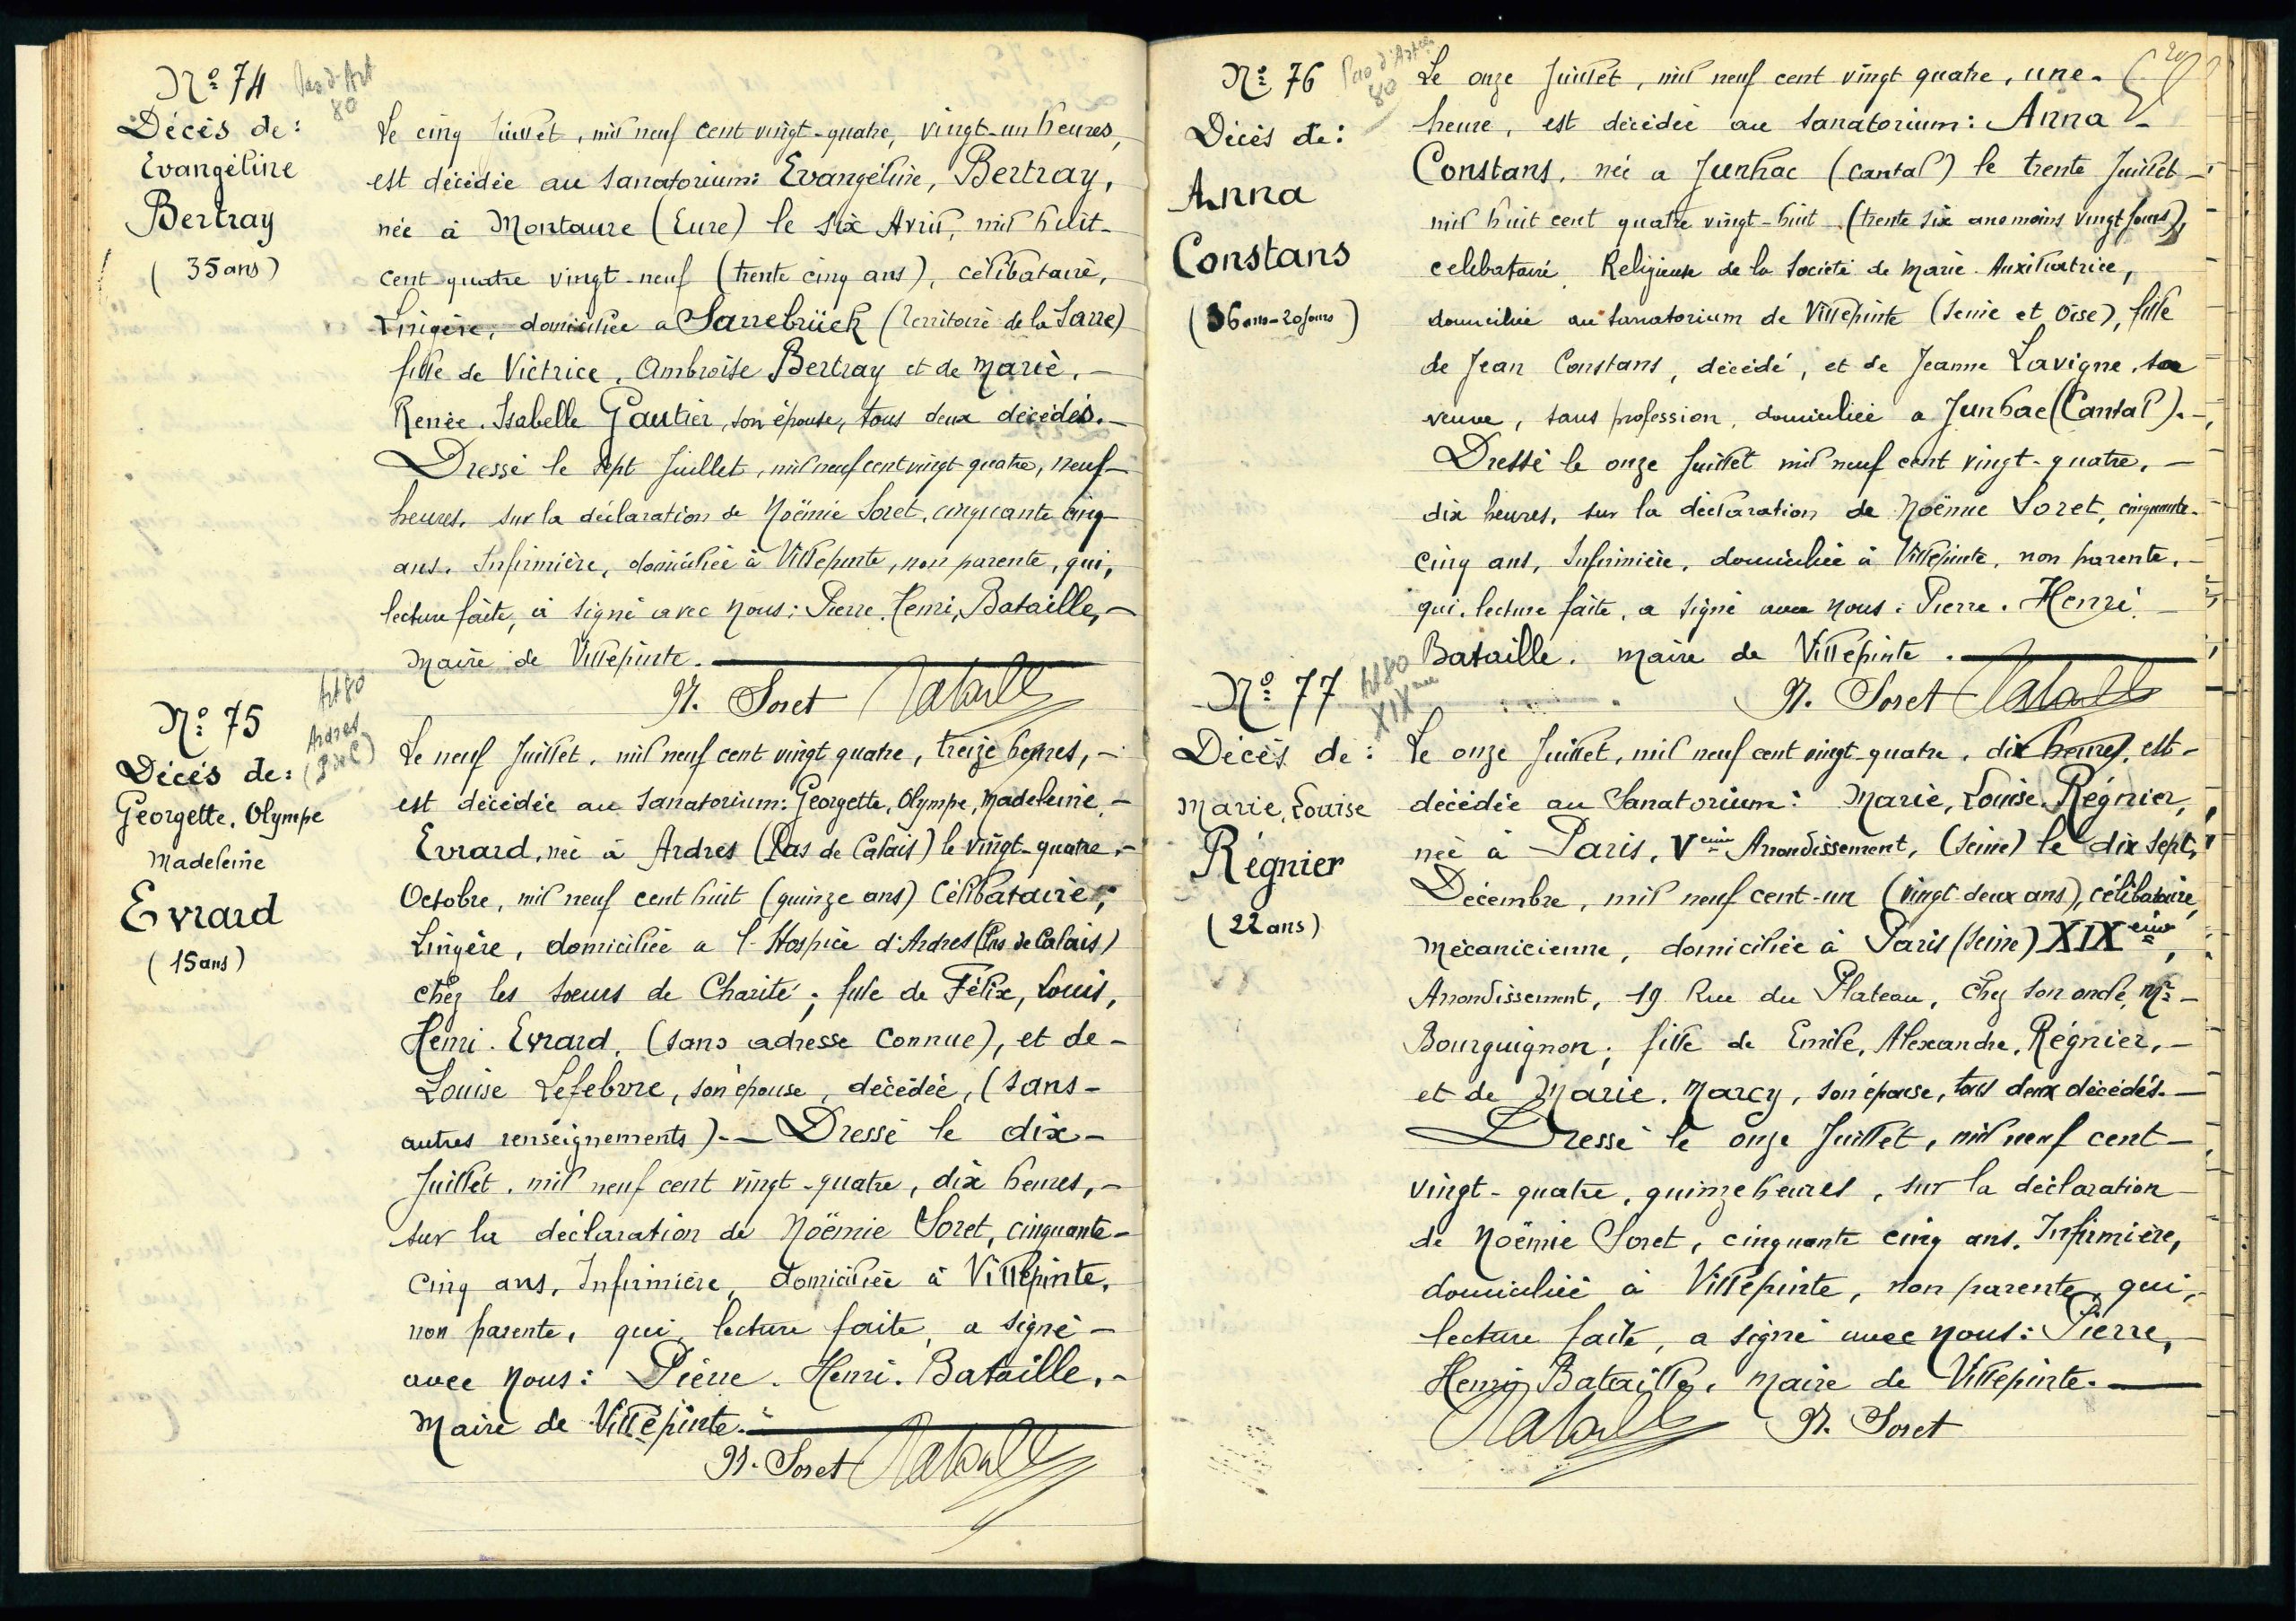 Nº 74
Pas d'Art
80
Décès de:
Evangéline
Bertray
(35 ans)
Le cinq Juillet, mil neuf cent vingt-quatre, vingt-un heures,
est décédée au Sanatorium: Evangéline, Bertray,
née à Montaure (Eure) le six Avril, mil huit-
cent quatre vingt-neuf (trente cinq ans), célibataire,
Lingère, domiciliée a Sarrebrück (Territoire de la Sarre)
fille de Victrice, Ambroise Bertray et de Marie,-
Renée. Isabelle Gautier, son épouse, tous deux décédés.-
Dressé le sept Juillet, mil neuf cent vingt quatre, neuf-
heures, sur la déclaration de Noëmie Soret, cinquante cinq
ans, Infirmière, domiciliée à Villepinte, non parente, qui,
lecture faite, a signé avec Nous: Pierre, Henri, Bataille,-
Maire de Villepinte.
N. Soret Bataille
Nº 75
Art 80
Ardres
(P de C)
Décès de:
Georgette, Olympe
Madeleine
Evrard
(15 ans)
Le neuf Juillet, mil neuf cent vingt quatre, treize heures,-
est décédée au Sanatorium: Georgette, Olympe, Madeleine,-
Evrard, née à Ardres (Pas de Calais) le vingt-quatre,-
Octobre, mil neuf cent huit (quinze ans) Célibataire,
Lingère, domiciliée a l'Hospice d'Ardres (Pas de Calais)
chez les Sœurs de Charité; fille de Félix, Louis,
Henri. Evrard, (sans adresse connue), et de-
Louise Lefebvre, son épouse, décédée, (sans-
autres renseignements).- Dressé le dix-
Juillet, mil neuf cent vingt-quatre, dix heures,-
sur la déclaration de Noëmie Soret, cinquante-
cinq ans, Infirmière, domiciliée à Villepinte,
non parente, qui, lecture faite, a signé-
avec Nous: Pierre. Henri. Bataille,-
Maire de Villepinte.
N. Soret Bataille
20
Nº 76
Pas d'Art
80
Décès de:
Anna
Constans
(36 ans-20 jours)
Le onze Juillet, mil neuf cent vingt quatre, une-
heure, est décédée au Sanatorium: Anna-
Constans, née a Junhac (Cantal) le trente Juillet-
mil huit cent quatre vingt-huit (trente six ans moins vingt jours),
célibataire, Religieuse de la Société de Marie Auxiliatrice,
domiciliée au Sanatorium de Villepinte (Seine et Oise), fille
de Jean Constans, décédé, et de Jeanne Lavigne, sa
veuve, sans profession, domiciliée a Junhac (Cantal).-
Dressé le onze Juillet mil neuf cent vingt-quatre,-
dix heures, sur la déclaration de Noëmie Soret, cinquante-
cinq ans, Infirmière, domiciliée à Villepinte, non parente,-
qui, lecture faite, a signé avec Nous: Pierre. Henri-
Bataille. Maire de Villepinte.
N. Soret Bataille
Nº 77
Art 80
XIXeme
Décès de:
Marie, Louise
Régnier
(22 ans)
Le onze Juillet, mil neuf cent vingt-quatre, dix heures, est-
décédée au Sanatorium: Marie, Louise. Régnier,
née à Paris, Veme Arrondissement, (Seine) le dix sept,
Décembre, mil neuf cent-un (vingt deux ans), célibataire,
Mécanicienne, domiciliée à Paris (Seine) XIXeme,
Arrondissement, 19 Rue du Plateau, chez son oncle, Mr-
Bourguignon; fille de Emile, Alexandre, Régnier,-
et de Marie. Marcy, son épouse, tous deux décédés.-
Dressé le onze Juillet, mil neuf cent-
vingt-quatre, quinze heures, sur la déclaration-
de Noëmie Soret, cinquante cinq ans, Infirmière,
domiciliée à Villepinte, non parente, qui,-
lecture faite, a signé avec Nous: Pierre,-
Henri, Bataille, Maire de Villepinte.
Bataille N. Soret